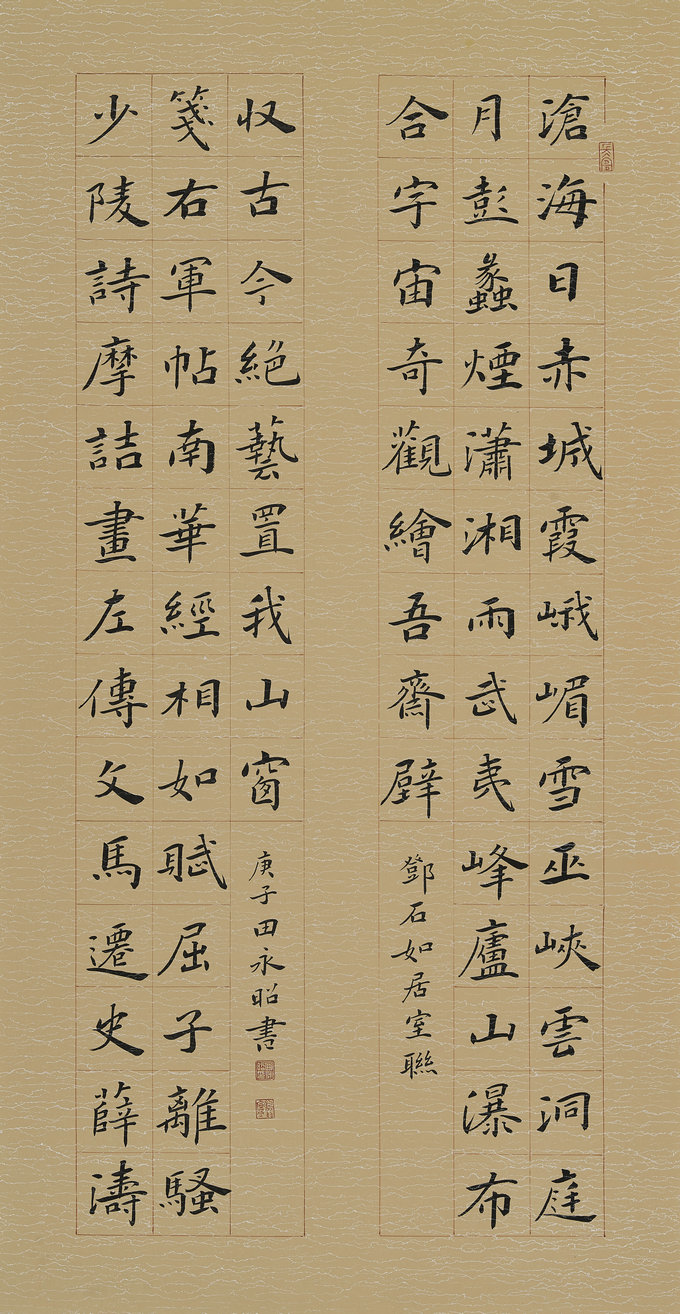 滄海日赤城霞峨嵋雪巫峽雲洞庭
月彭蠡煙瀟湘雨武夷峰廬山瀑布
合宇宙奇觀繪吾齋壁
鄧石如居室聯
少陵詩摩詰畫左傳文馬遷史薛濤
箋右軍帖南華經相如賦屈子離騷
収古今絶藝置我山窗
庚子田永昭書